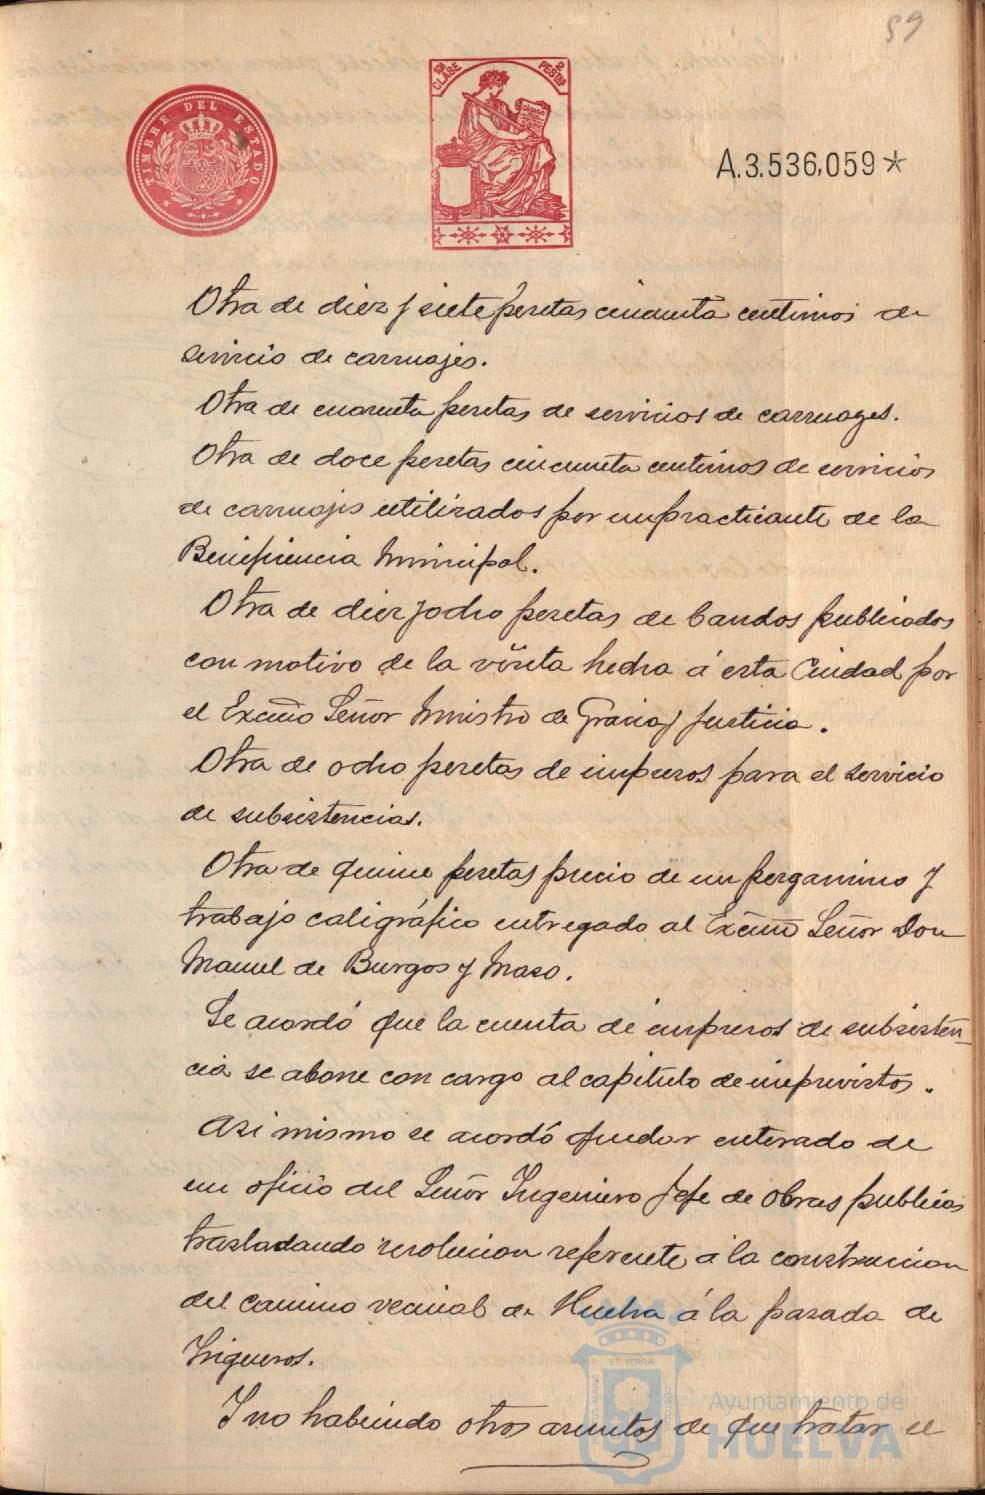 59
TIMBRE DEL ESTADO
10ª CLASE 2 PESTAS
A.3.536,059*
Otra de diez y siete pesetas cincuenta centimos de
servicio de carruajes.
Otra de cuarenta pesetas de servicios de carruages.
Otra de doce pesetas cincuenta centimos de servicios
de carruajes utilizados por un practicante de la
Beneficencia Municipal.
Otra de diez y ocho pesetas de bandos publicados
con motivo de la visita hecha á esta Ciudad por
el Excmo Señor Ministro de Gracia y Justicia.
Otra de ocho pesetas de impresos para el servicio
de subsistencias.
Otra de quince pesetas precio de un pergamino y
trabajo caligráfico entregado al Excmo Señor Don
Manuel de Burgos y Mazo.
Se acordó que la cuenta de impresos de subsisten-
cia se abone con cargo al capitulo de imprevistos.
Asi mismo se acordó quedar enterado de
un oficio del Señor Ingeniero Jefe de Obras publicas
trasladando resolucion referente á la construccion
del camino vecinal de Huelva á la pasada de
Trigueros.
Y no habiendo otros asuntos de que tratar el
ET TERRÆ
Ayuntamiento de
HUELVA